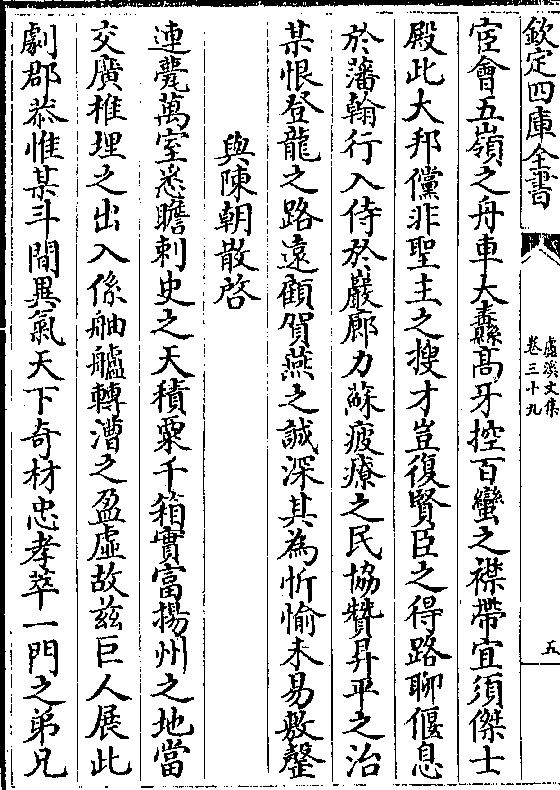 欽定四庫全書
盧溪文集
卷三十九
五
宦會五嶺之舟車大纛髙牙控百蠻之襟帶宜須傑士
殿此大邦儻非聖主之搜才豈復賢臣之得路聊偃息
於藩翰行入侍於巖廊力蘇疲瘵之民協贊昇平之治
某恨登龍之路遠顧賀燕之誠深其為忻愉未易敷罄
與陳朝散啓
連甍萬室悉瞻刺史之天積粟千箱實富揚州之地當
交廣推理之出入係舳艫轉漕之盈虛故兹巨人展此
劇郡恭惟某斗間異氣天下奇材忠孝萃一門之弟兄